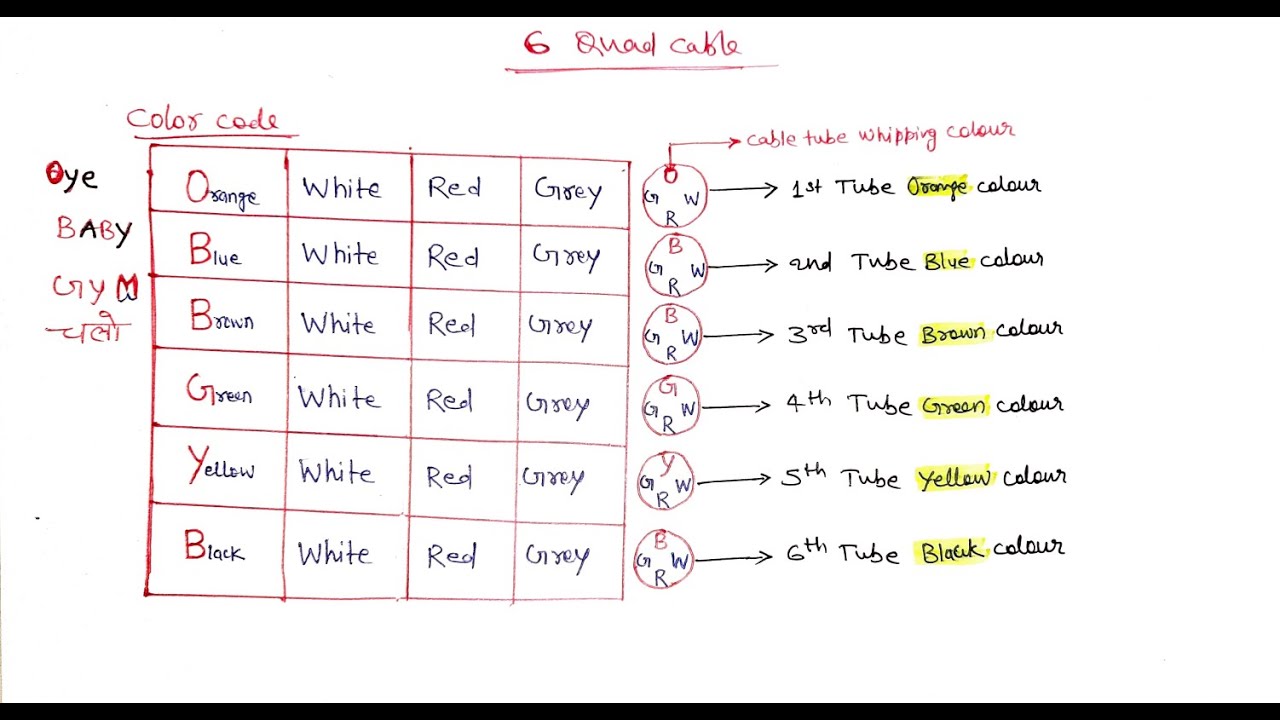 6 Quad cable
Color code
cable tube whipping colour
Oye
BABY
GYM
चलो
Orange White Red Grey
O
G W
R
1st Tube Orange colour
Blue White Red Grey
B
G W
R
2nd Tube Blue colour
Brown White Red Grey
B
G W
R
3rd Tube Brown colour
Green White Red Grey
G
G W
R
4th Tube Green colour
Yellow White Red Grey
Y
G W
R
5th Tube Yellow colour
Black White Red Grey
B
G W
R
6th Tube Black colour